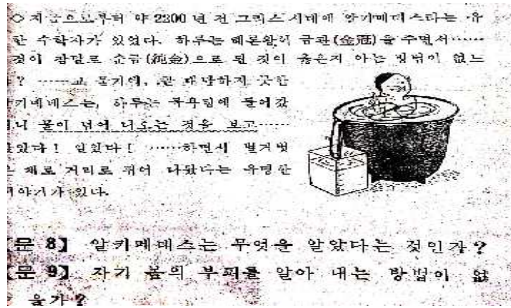 ◇ 지금으로부터 약 2200 년 전 그리스 시대에 알키메데스라는 유
한 수학자가 있었다. 하루는 헤론왕이 금관(金冠)을 주면서……
것이 정말로 순금(純金)으로 된 것이 옳은지 아는 방법이 없느
? ……고 물기에, 곧 대답하지 못한
키메데스는, 하루는 목욕탕에 들어갔
니 물이 넘어 나오는 것을 보고……
았다! 알았다! ……하면서 벌거벗
은 채로 거리로 뛰어 나왔다는 유명한
이야기가 있다.
【문 8】 알키메데스는 무엇을 알았다는 것인가?
【문 9】 자기 몸의 부피를 알아 내는 방법이 없
을가?